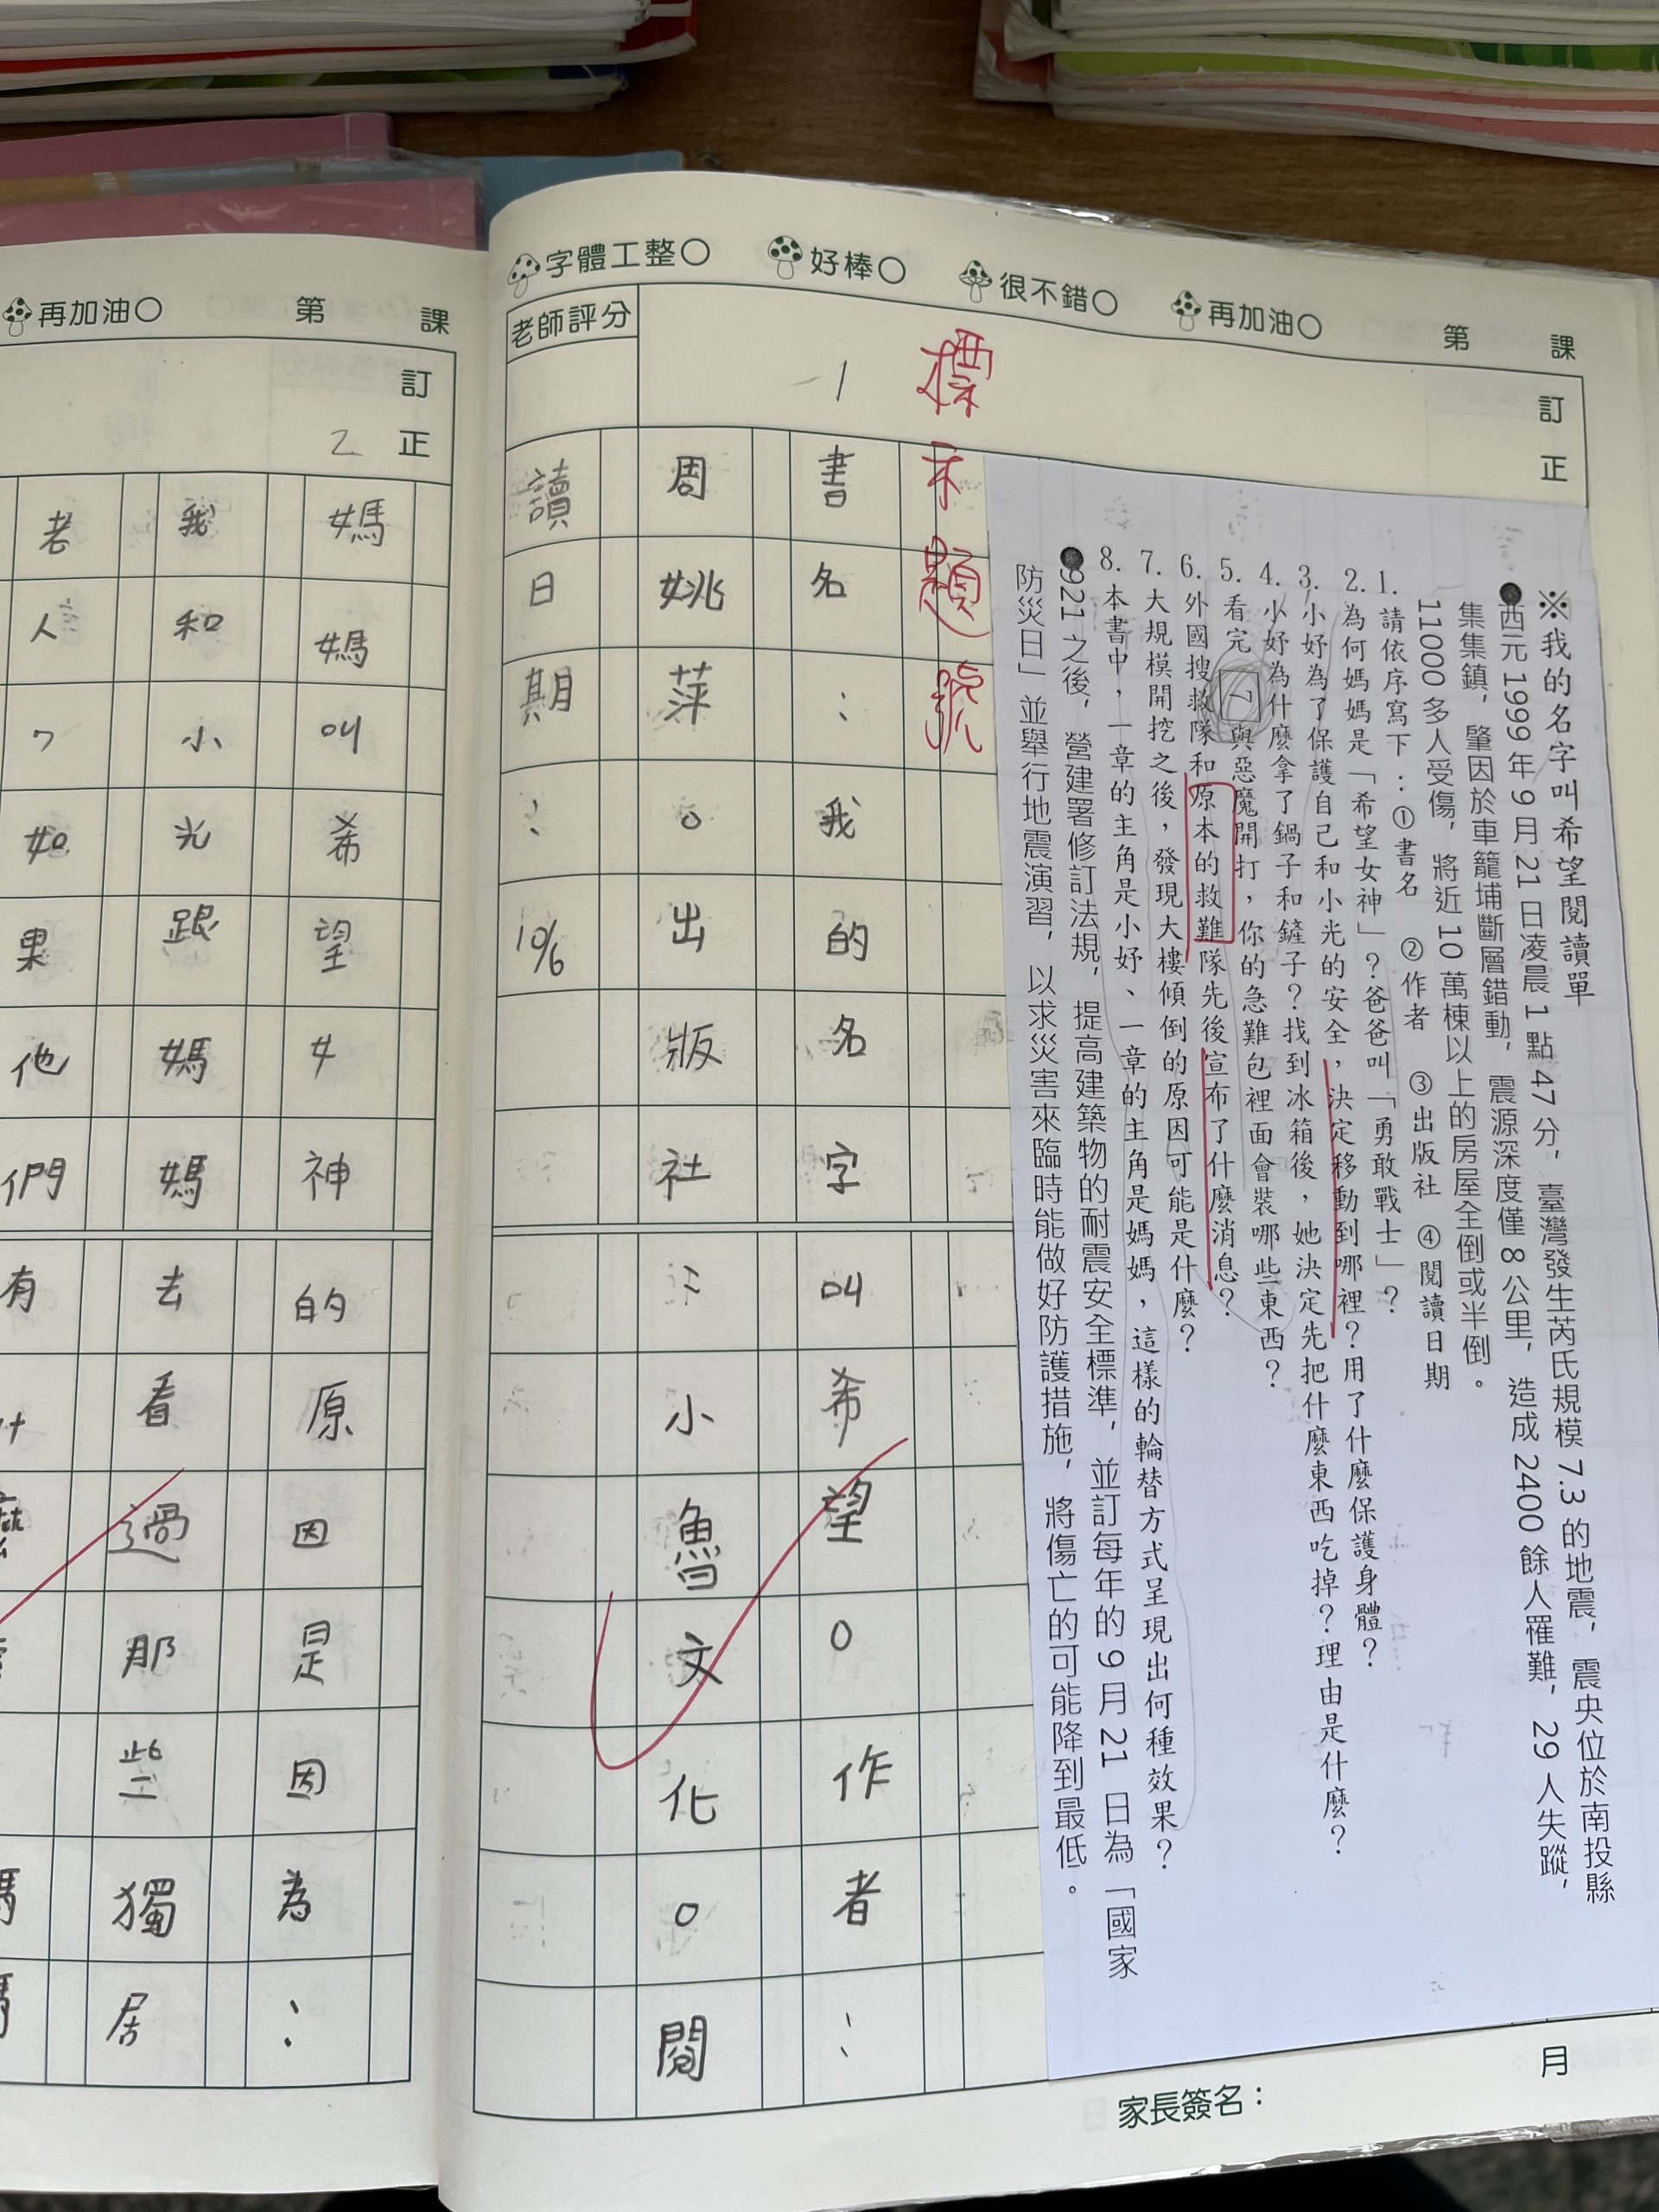 字體工整○ 好棒○ 很不錯○ 再加油○ 第 課
訂正
老師評分
※我的名字叫希望閱讀單
●西元1999年9月21日凌晨1點47分,臺灣發生芮氏規模7.3的地震,震央位於南投縣
集集鎮,肇因於車籠埔斷層錯動,震源深度僅8公里,造成2400餘人罹難,29人失蹤,
11000多人受傷,將近10萬棟以上的房屋全倒或半倒。
1.請依序寫下:①書名 ②作者 ③出版社 ④閱讀日期
2.為何媽媽是「希望女神」?爸爸叫「勇敢戰士」?
3.小妤為了保護自己和小光的安全,決定移動到哪裡?用了什麼保護身體?
4.小妤為什麼拿了鍋子和鏟子?找到冰箱後,她決定先把什麼東西吃掉?理由是什麼?
5.看完 與惡魔開打,你的急難包裡面會裝哪些東西?
6.外國搜救隊和原本的救難隊先後宣布了什麼消息?
7.大規模開挖之後,發現大樓傾倒的原因可能是什麼?
8.本書中,一章的主角是小妤、一章的主角是媽媽,這樣的輪替方式呈現出何種效果?
●921之後,營建署修訂法規,提高建築物的耐震安全標準,並訂每年的9月21日為「國家
防災日」並舉行地震演習,以求災害來臨時能做好防護措施,將傷亡的可能降到最低。
標示題號
1
書名:我的名字叫希望。作者:
周姚萍。出版社:小魯文化。閱
讀日期:10/6
月
家長簽名:
再加油○ 第 課
訂正
2
媽媽叫希望女神的原因是因為:
我和小光跟媽媽去看過那些獨居
老人,如果他們有